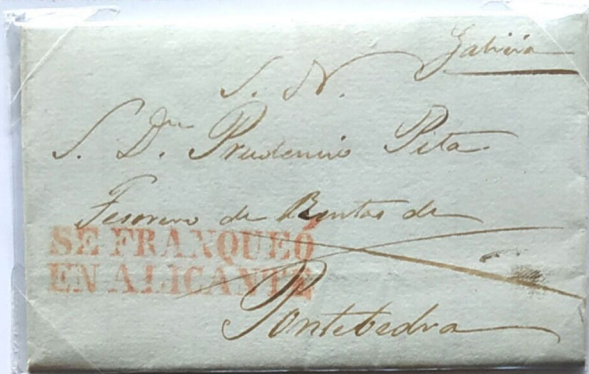 Galicia
S. N.
S. Dn. Prudencio Pita
Tesorero de Rentas de
SE FRANQUEÓ
EN ALICANTE
Pontebedra